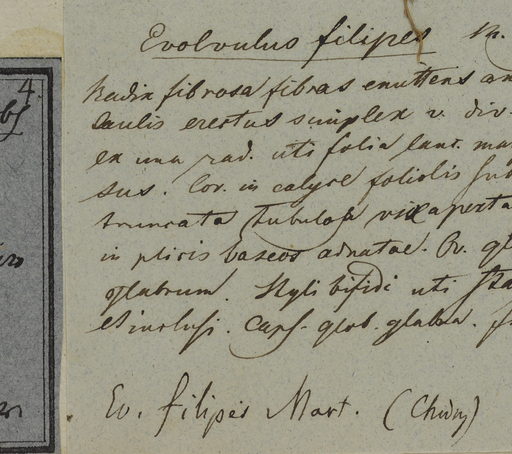 Evolvulus filipes M.
Radix fibrosa fibras emittens an
Caulis erectus simplex v. div.
ex una rad. uti folia lanc. mar
sus. Cor. in calyce foliolis sub
truncata tubulosa vix aperta
in plicis baseos adnatae. Ov. gl
glabrum. Styli bifidi uti sta
et inclusi. Caps. glob. glabra. f
Ev. filipes Mart.
4.